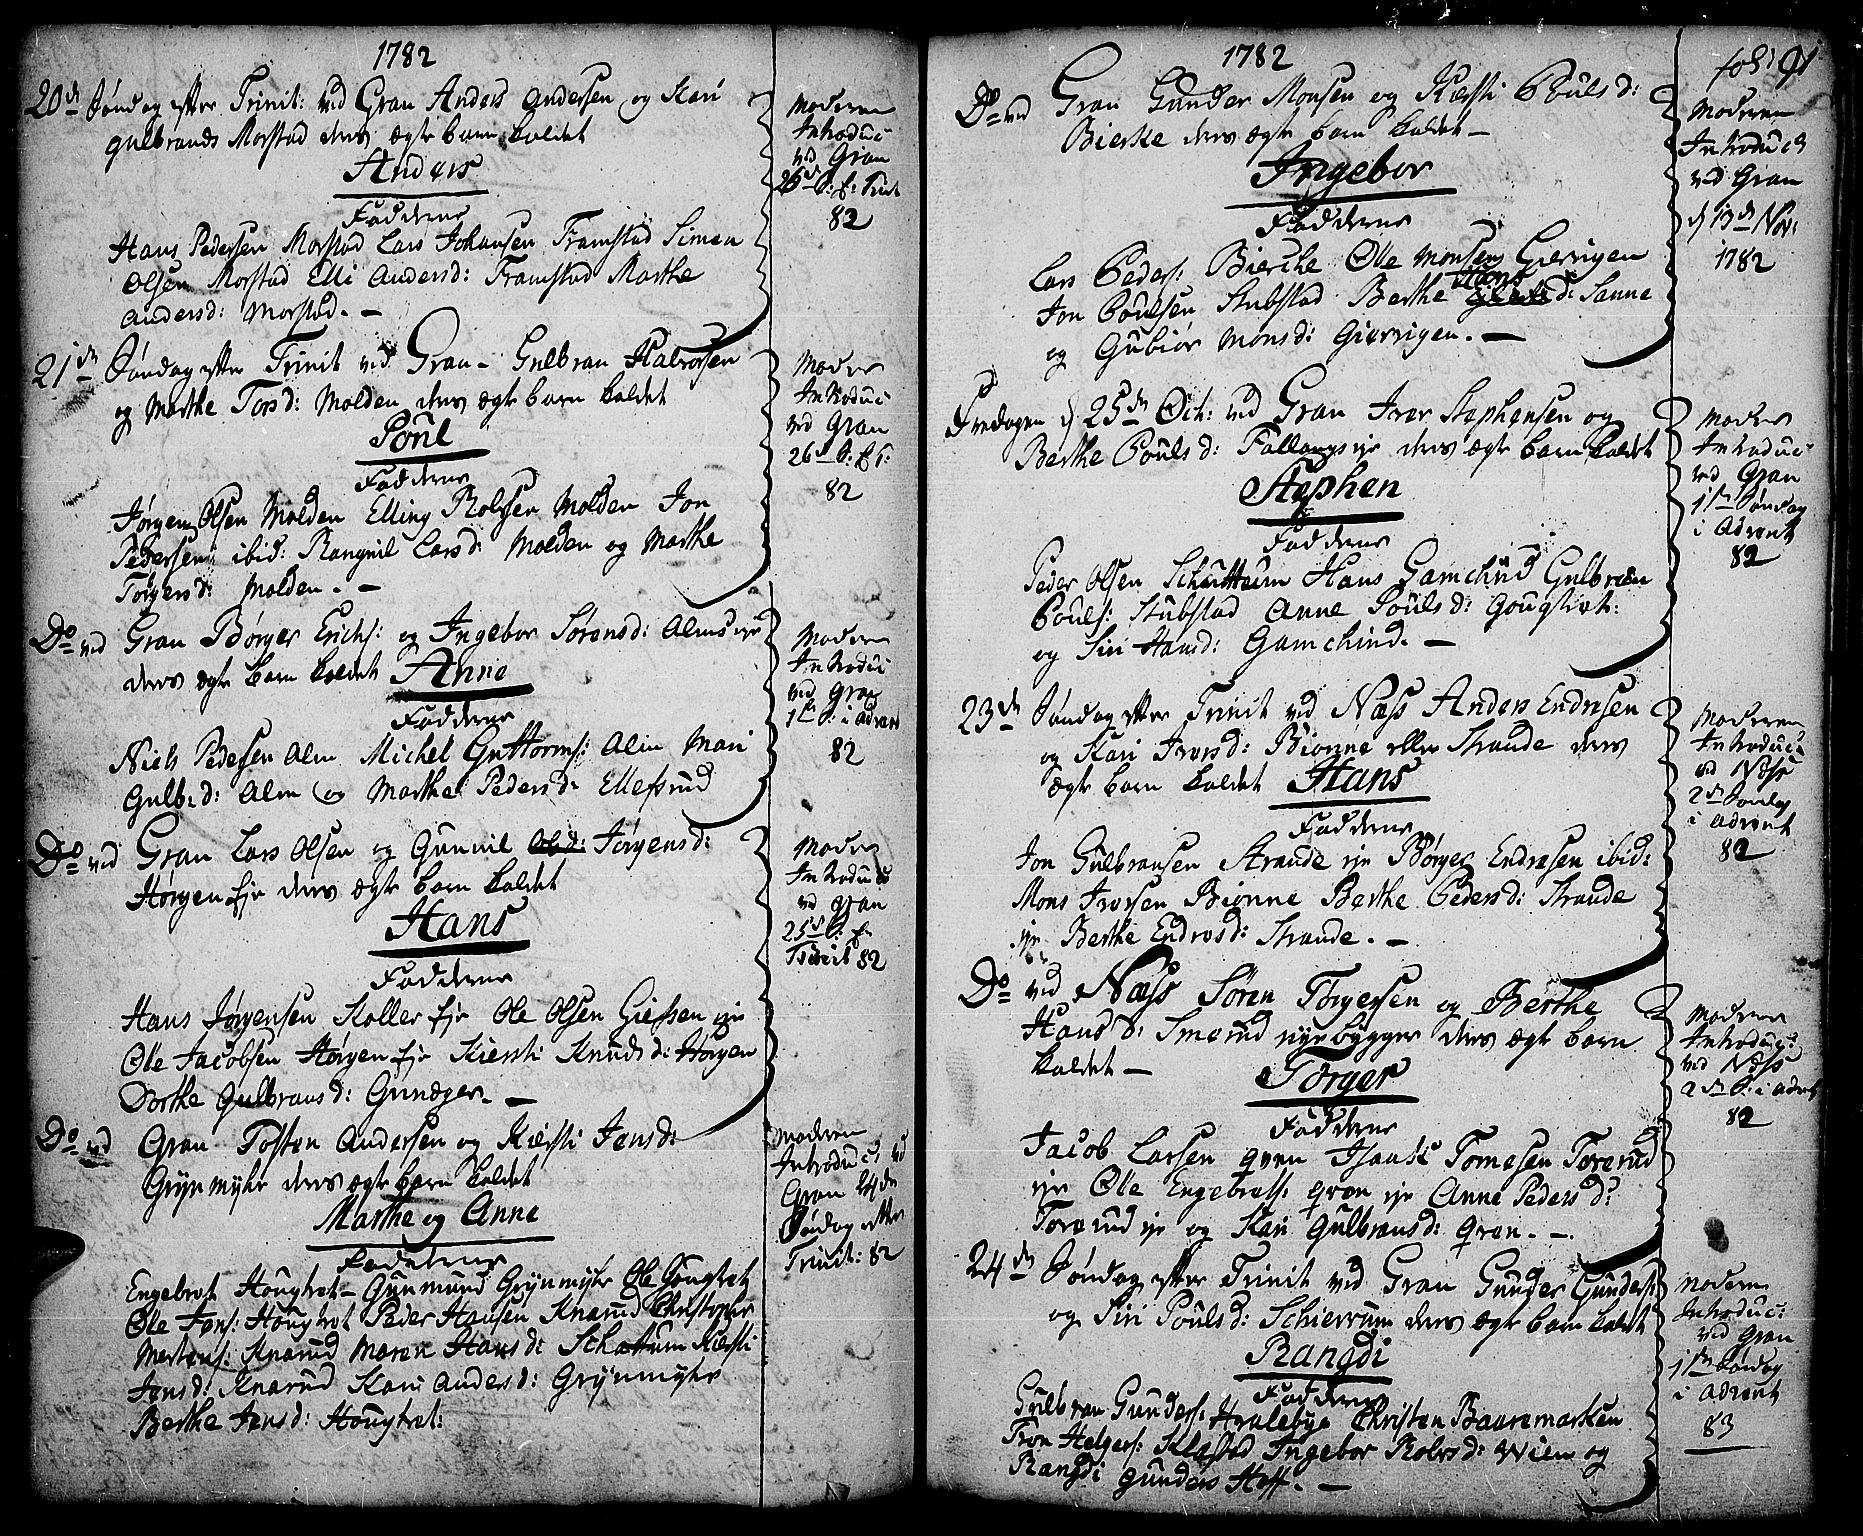 1782
20de Søndag efter Trinit: ved Gran Anders Andersen og Kari
Gulbrands Morstad deres ægte barn kaldet
Anders
Fadderne
Hans Pedersen Morstad Lars Johansen Framstad Simen
Olsen Morstad Elli Andersd: Framstad Marthe
Andersd: Morstad. —
Moderen
Introduc:
ved Gran
26de S: E: Trinit
82
21de Søndag efter Trinit ved Gran - Gulbran Halvorsen
og Marthe Torsd: Molden deres ægte barn kaldet
Poul
Fadderne
Jørgen Olsen Molden Elling Rolfsen Molden Jon
Pedersen ibid: Rangnil Larsd: Molden og Marthe
Torgersd: Molden. —
Moder
Introduc:
ved Gran
26de S: E: T:
82
Do ved Gran Børger Erichs: og Ingebor Sørensd: Alms eje
deres ægte barn kaldet Anne
Fadderne
Niels Pedersen Alm Michel Guttorms: Alm Mari
Gulb:d: Alm og Marthe Pedersd: Ellefsrud
Moderen
Introduc:
ved Gran
1ste S: i Advent
82
Do ved Gran Lars Olsen og Gunnil Olsd: Jørgensd:
Hørgen eje deres ægte barn kaldet
Hans
Fadderne
Hans Jørgensen Koller eje Ole Olsen Giefsen eje
Ole Jacobsen Hørgen eje Kiersti Knudsd: Hørgen
Dorthe Gulbransd: Gunæger. —
Moder
Introduc:
ved Gran
25de S: E:
Trinit 82
Do ved Gran Tosten Andersen og Kiersti Jensd:
Grynmyhr deres ægte barn kaldet
Marthe og Anne
Fadderne
Engebret Hougtvet - Gunmund Grynmyhr Ole Hougtvet
Ole Jens: Hougtvet Peder Hansen Knarud Christopher
Mortens: Knarud Maren Hansd: Schattum Kiersti
Jensd: Knarud Kari Andersd: Grynmyhr
Berthe Jensd: Hougtvet:
Moderen
Introduc: ved
Gran 24de
Søndag efter
Trinit: 82
1782
fol: 91
Do ved Gran Gunder Monsen og Kiersti Poulsd:
Bierke deres ægte barn kaldet —
Ingebor
Fadderne
Lars Peders: Bierche Ole Monsen Gierrigen
Jon Poulsen Stubstad Berthe Hans d: Sanne
og Gubiør Monsd: Gierrigen. —
Moderen
Introduc:
ved Gran
d 13de Nov:
1782
Fredagen d 25de Oct: ved Gran Iver Stephensen og
Berthe Poulsd: Fallangs eje deres ægte barn kaldet
Stephen
Fadderne
Peder Olsen Schuttum Hans Gamchind Gulbran
Pouls: Stubstad Anne Poulsd: Gougtvet:
og Siri Hansd: Gamchind. —
Moder
Introduc:
ved Gran
1ste Søndag
i Advent
82
23de Søndag efter Trinit ved Næss Anders Endresen
og Kari Iversd: Bionne eller Strande deres
ægte barn kaldet Hans
Fadderne
Jon Gulbransen Strande eje Børger Endresen ibid:
Mons Iversen Bionne Berthe Pedersd: Strande
eje Berthe Endresd: Strande. —
Moderen
Introduc:
ved Næss
2de Søndag
i Advent
82
Do ved Næss Søren Torgersen og Berthe
Hansd: Smerud nye bygger deres ægte barn
kaldet —
Torger
Fadderne
Jacob Larsen qven Isaac Tomesen Torerud
eje Ole Engebrets: gran eje Anne Pedersd:
Torerud eje og Kari Gulbransd: gran. —
Moderen
Introduc:
ved Næss
2de S: i Advent
82
24de Søndag efter Trinit ved Gran Gunder Gunders:
og Siri Poulsd: Schierrum deres ægte barn kaldet
Rangdi
Fadderne
Gulbran Gunders: Hvalebye Christen Baaremarken
Tron Helgers: Klæstad Ingebor Rolvsd: Wien og
Rangdi Gunders Hoff. —
Moderen
Introduc:
ved Gran
1ste Søndag
i Advent
83